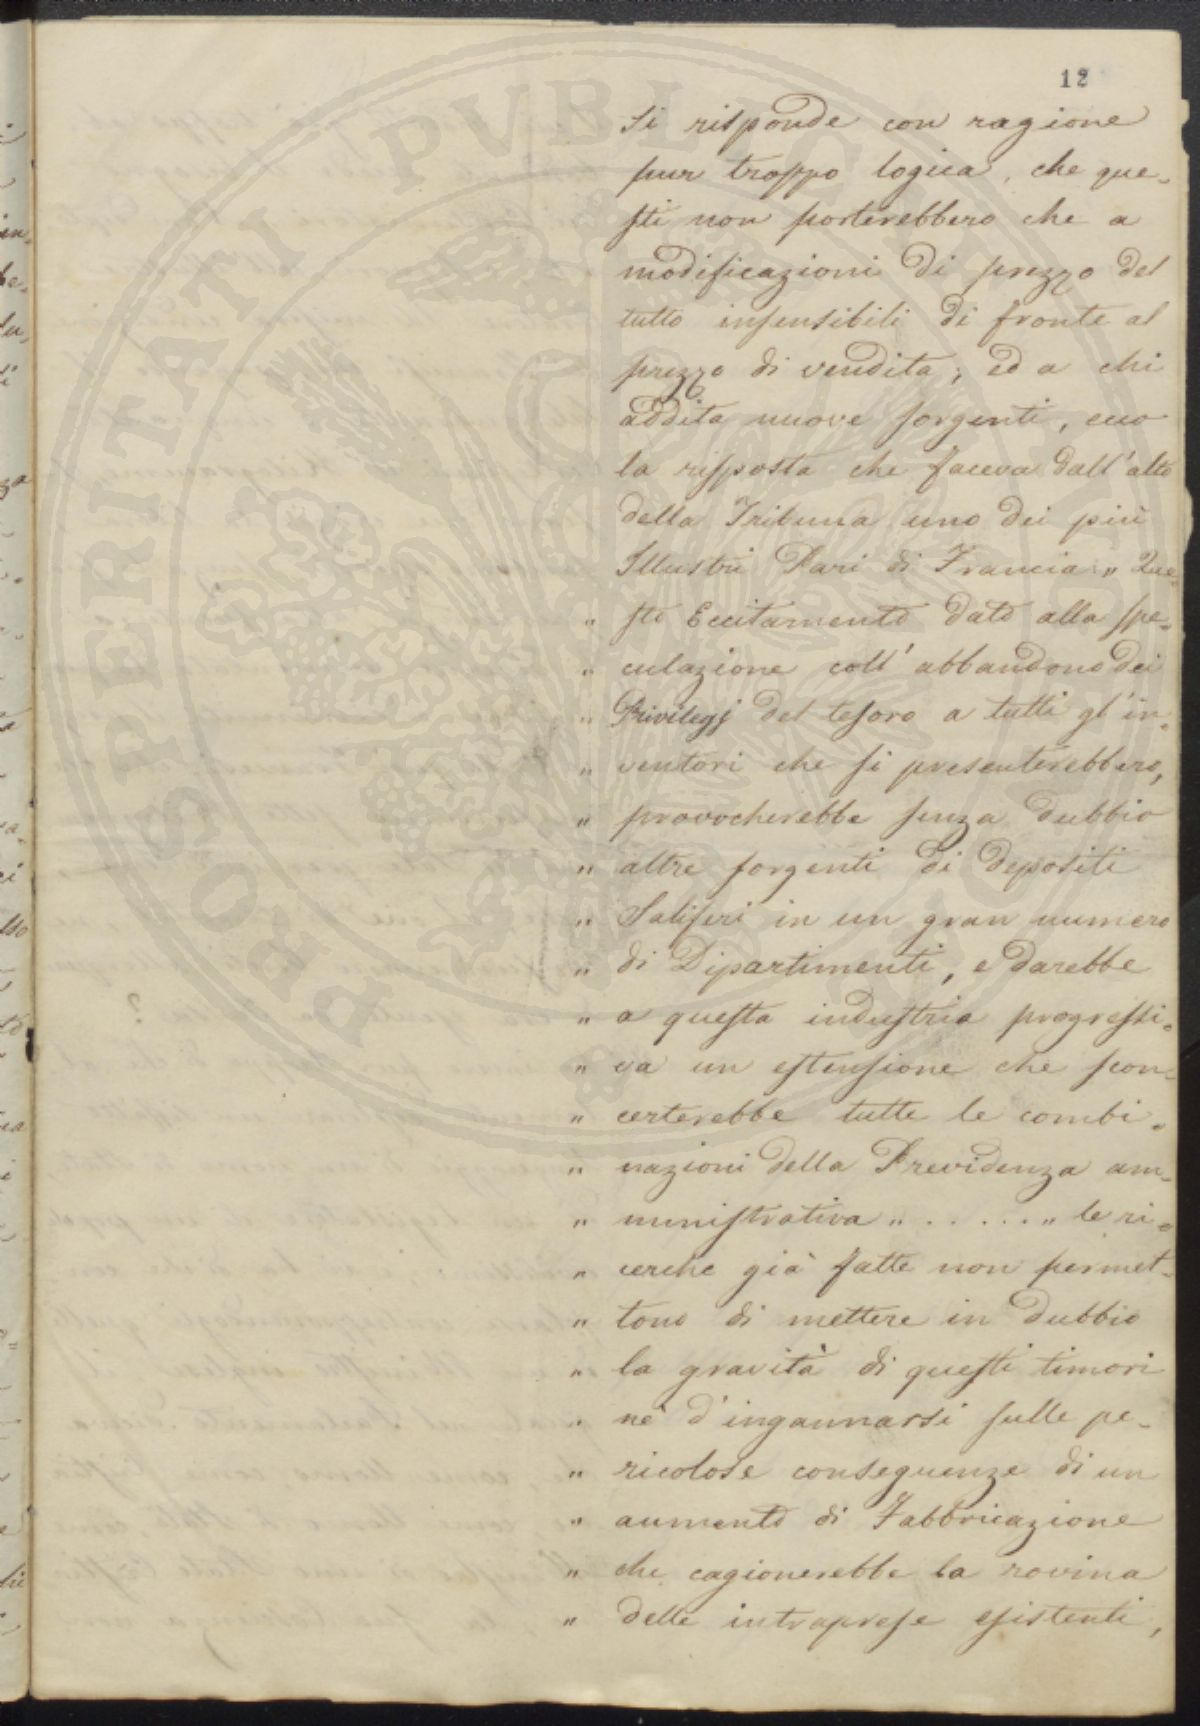 12
Si risponde con ragione
pur troppo logica, che que-
sti non porterebbero che a
modificazioni di prezzo del
tutto insensibili di fronte al
prezzo di vendita; ed a chi
addita nuove sorgenti, ecco
la risposta che faceva dall'alto
della Tribuna uno dei più
Illustri Pari di Francia „ Que-
„ sto Eccitamento dato alla spe-
„ culazione coll'abbandono dei
„ Privilegj del tesoro a tutti gl'in-
„ ventori che si presenterebbero,
„ provocherebbe senza dubbio
„ altre sorgenti di depositi
„ Saliferi in un gran numero
„ di Dipartimenti, e darebbe
„ a questa industria progressi-
„ va un estensione che scon-
„ certerebbe tutte le combi-
„ nazioni della Previdenza am-
„ ministrativa „ . . . . . „ le ri-
„ cerche già fatte non permet-
„ tono di mettere in dubbio
„ la gravità di questi timori
„ nè d'ingannarsi sulle pe-
„ ricolose conseguenze di un
„ aumento di Fabbricazione
„ che cagionerebbe la rovina
„ delle intraprese esistenti,
PROSPERITATI PVBLICAE